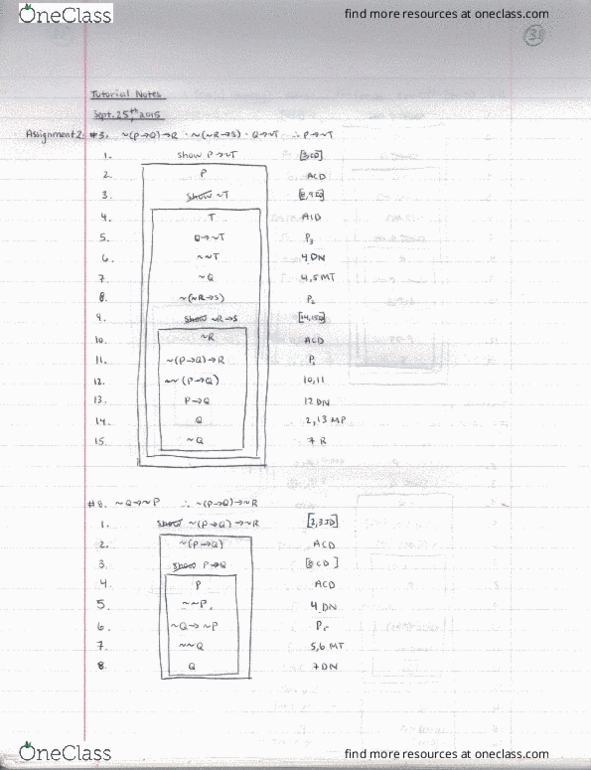 OneClass find more resources at oneclass.com
31
Tutorial Notes
Sept. 25th, 2015
Assignment 2: #3. ~(P→Q)→R · ~(~R→S) · Q→~T ∴ P→~T
1. Show P→~T [3CD]
2. P ACD
3. Show ~T [8,9ID]
4. T AID
5. Q→~T P3
6. ~~T 4DN
7. ~Q 4,5 MT
8. ~(~R→S) P2
9. Show ~R→S [14,15ID]
10. ~R ACD
11. ~(P→Q)→R P1
12. ~~(P→Q) 10,11
13. P→Q 12 DN
14. Q 2,13 MP
15. ~Q 7 R
#8. ~Q→~P ∴ ~(P→Q)→~R
1. Show ~(P→Q)→~R [2,3ID]
2. ~(P→Q) ACD
3. Show P→Q [8 CD]
4. P ACD
5. ~~P 4 DN
6. ~Q→~P
7. ~~Q 5,6 MT
8. Q 7DN
OneClass find more resources at oneclass.com